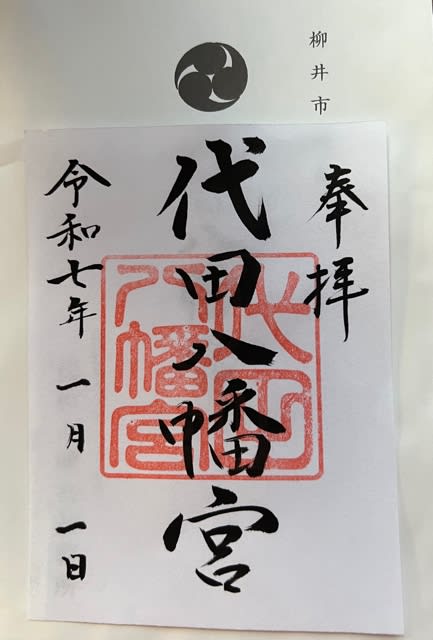 柳井市
奉拝
代田八幡宮
代田
八幡宮
令和七年 一月 一日